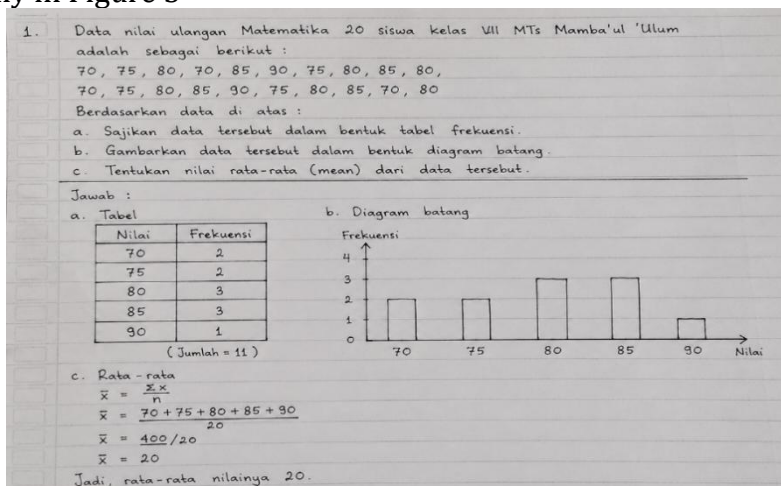 1. Data nilai ulangan Matematika 20 siswa kelas VII MTs Mamba'ul 'Ulum
adalah sebagai berikut :
70, 75, 80, 70, 85, 90, 75, 80, 85, 80,
70, 75, 80, 85, 90, 75, 80, 85, 70, 80
Berdasarkan data di atas :
a. Sajikan data tersebut dalam bentuk tabel frekuensi.
b. Gambarkan data tersebut dalam bentuk diagram batang.
c. Tentukan nilai rata-rata (mean) dari data tersebut.
Jawab :
a. Tabel
Nilai Frekuensi
70 2
75 2
80 3
85 3
90 1
(Jumlah = 11)
b. Diagram batang
Frekuensi
4
3
2
1
0
70 75 80 85 90 Nilai
c. Rata-rata
x̄ = Σx / n
x̄ = 70 + 75 + 80 + 85 + 90 / 20
x̄ = 400/20
x̄ = 20
Jadi, rata-rata nilainya 20.